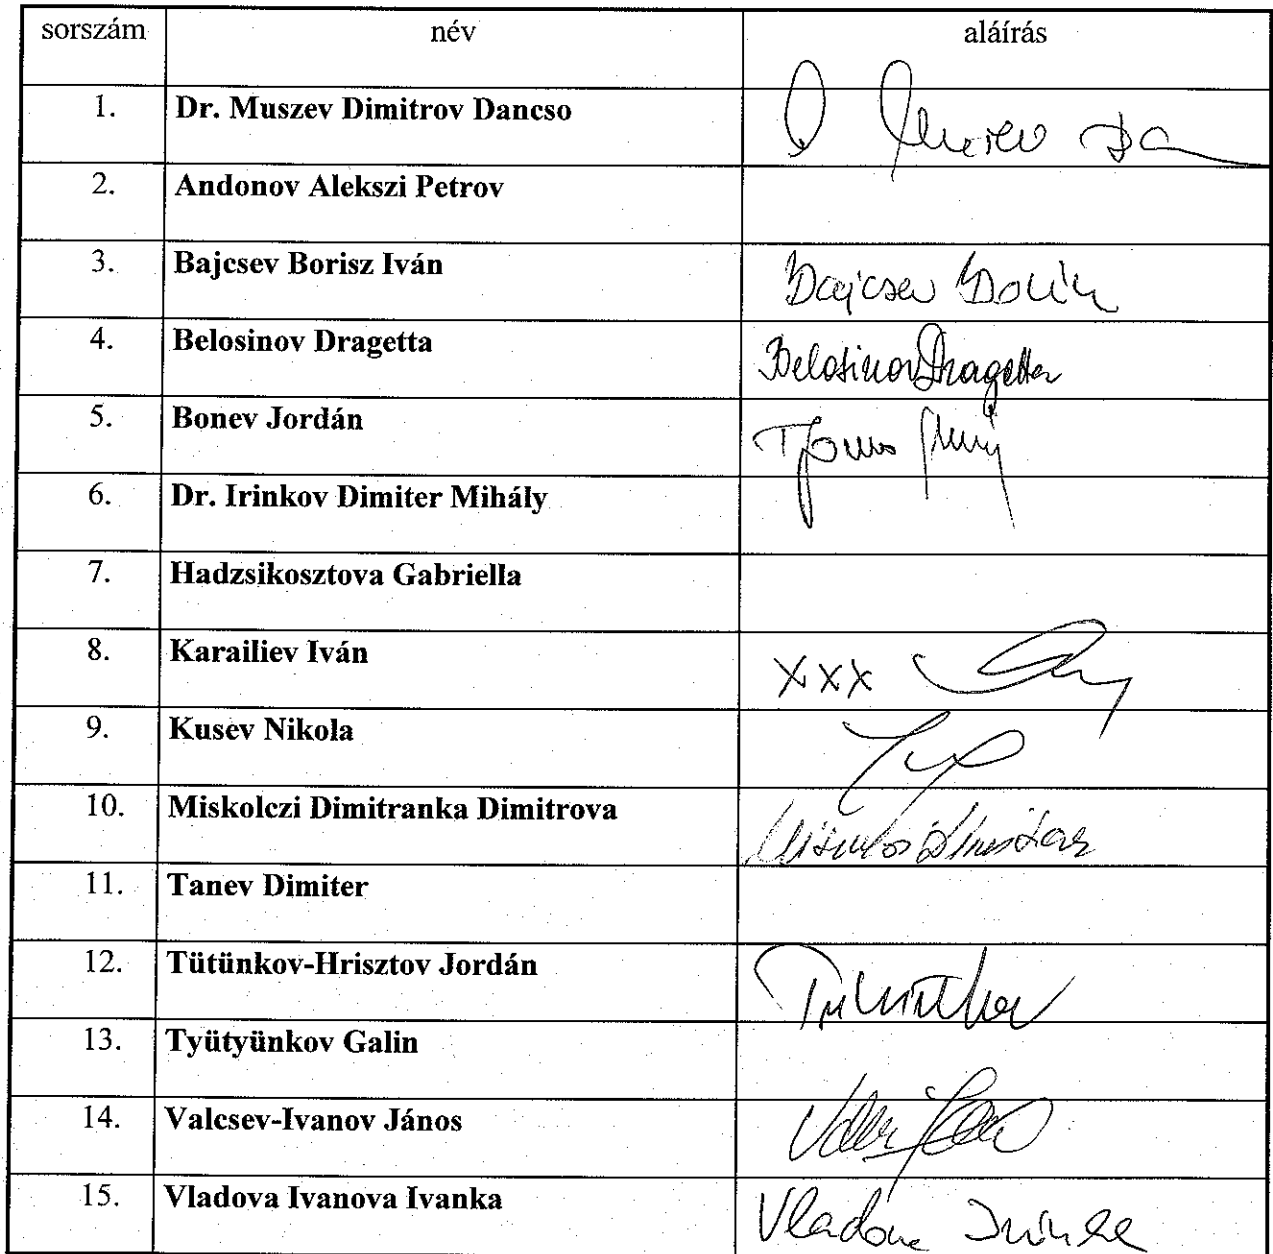 sorszám név aláírás
1. Dr. Muszev Dimitrov Dancso
2. Andonov Alekszi Petrov
3. Bajcsev Borisz Iván Bajcsev
4. Belosinov Dragetta Belosinov Dragetta
5. Bonev Jordán
6. Dr. Irinkov Dimiter Mihály
7. Hadzsikosztova Gabriella
8. Karailiev Iván xxx
9. Kusev Nikola
10. Miskolczi Dimitranka Dimitrova
11. Tanev Dimiter
12. Tütünkov-Hrisztov Jordán
13. Tyütyünkov Galin
14. Valcsev-Ivanov János
15. Vladova Ivanova Ivanka